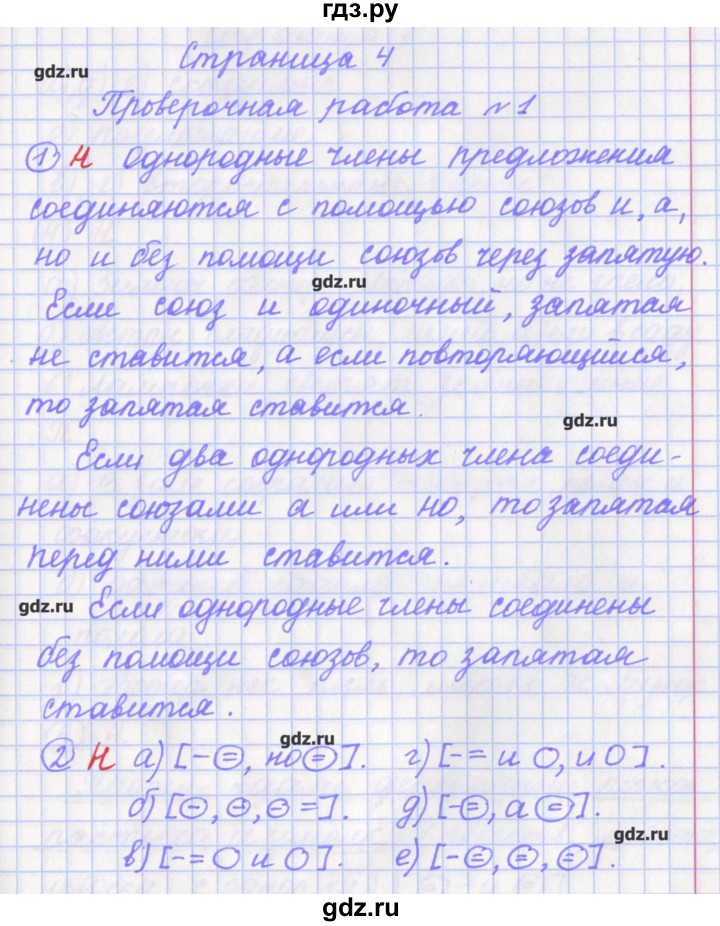 гдз.ру
Страница 4
gdz.ru
Проверочная работа №1
1) Н Однородные члены предложения
соединяются с помощью союзов и, а,
но и без помощи союзов через запятую.
gdz.ru
Если союз и одиночный, запятая
не ставится, а если повторяющийся,
то запятая ставится.
gdz.ru
Если два однородных члена соеди-
нены союзами а или но, то запятая
перед ними ставится.
gdz.ru Если однородные члены соединены
без помощи союзов, то запятая
ставится.
gdz.ru
2) Н а) [-⊜, но ⊜]. г) [-= и О, и О].
б) [⊖, ⊖, ⊖ =]. д) [-⊜, а ⊜].
gdz.ru
в) [-= О и О]. е) [-⊜, ⊜, ⊜].
gdz.ru